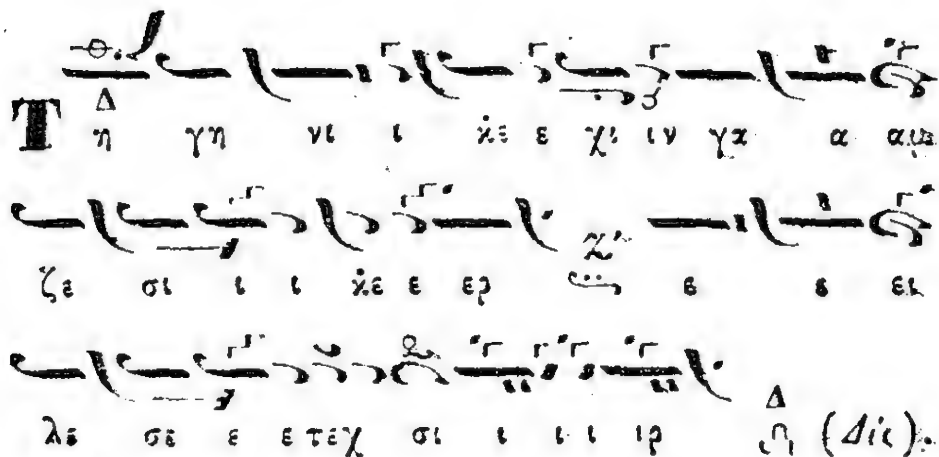 Δ
Τ η γη νι ι κ̇ε ε χι ιν γα α αμ
ζε σι ι ι κ̇ε ε ερ Ζʹ ε ε ει
λε σε ε ε τεχ σι ι ι ι ιρ Δ (Δίς).